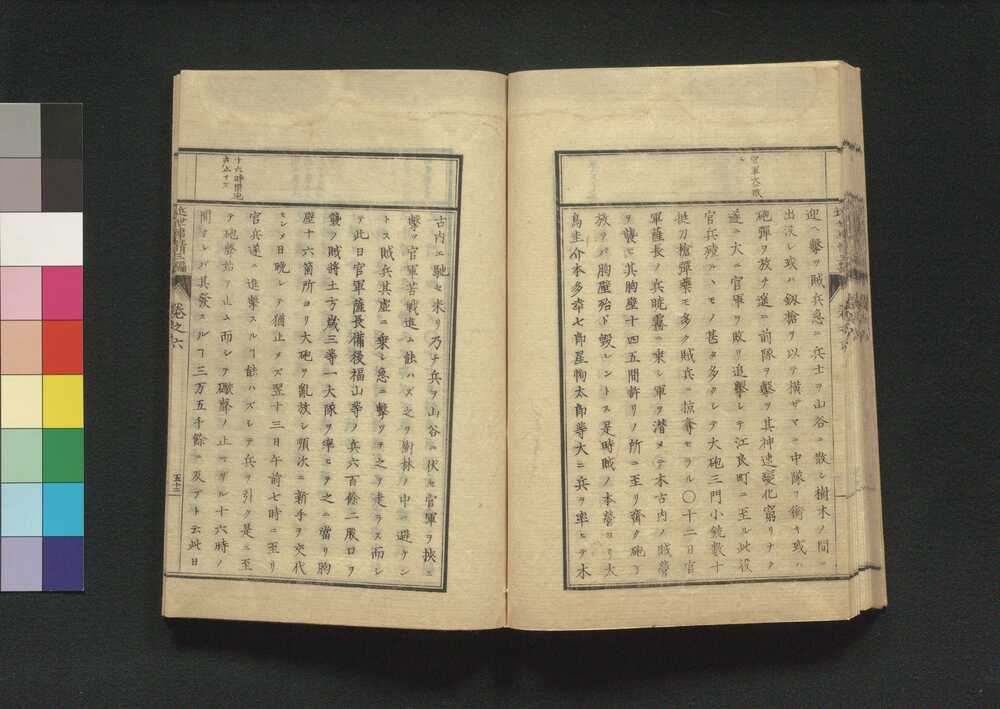 官軍大敗
迎ヘ擊ツ賊兵急ニ兵士ヲ山谷ニ散シ樹木ノ間ニ
出沒シ或ハ釼槍ヲ以テ橫ザマニ中隊ヲ衝キ或ハ
砲彈ヲ放チ遙ニ前隊ヲ擊ツ其神速變化窮リナク
遂ニ大ニ官軍ヲ敗リ追擊シテ江良町ニ至ル此役
官兵殪ルヽモノ甚タ多クシテ大砲三門小銃數十
挺刀槍彈藥モ多ク賊兵ニ掠奪セラル〇十二日官
軍薩長ノ兵曉霧ニ乘シ軍ヲ潛メテ木古内ノ賊營
ヲ襲ヒ其胸壁十四五間許リノ所ニ至リ齊ク砲ヲ
放ツバ胸壁殆ド毀レントス是時賊ノ本營ヨリ大
鳥圭介本多幸七郎星恂太郎等大ニ兵ヲ率ヒテ木
古内エ馳セ來リ乃チ兵ヲ山谷ニ伏セ官軍ヲ挾ミ
擊ツ官軍苦戰進ム能ハズ之ヲ樹林ノ中ニ避ケン
トス賊兵其虛ニ乘シ急ニ擊リヲ之ヲ走ラス而シ
テ此日官軍薩長備後福山等ノ兵六百餘二股口ヲ
襲ヲ賊將土方歲三等一大隊ヲ率ヒヲ之ニ當リ胸
壁十六箇所ヨリ大砲ヲ亂放シ順次ニ新手ヲ交代
セシメ日晚レテ猶止ヲズ翌十三日午前七時ニ至リ
官兵遂ニ進擊スルヿ能ハズシテ兵ヲ引ク是ニ至
テ砲擊始ヲ止ム而シテ礮聲ノ止マザル十六時ノ
間ナレバ其發スルヿ三万五千餘ニ及ブト云此日
十六時間砲
近世 情三編
卷之六
五十二